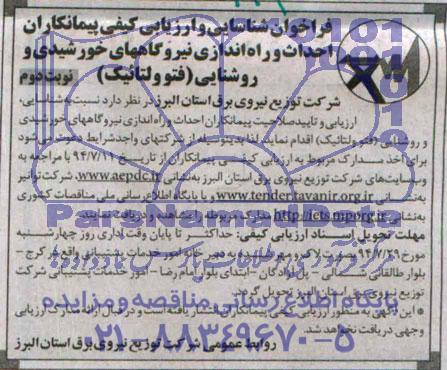 فراخوان شناسایی و ارزیابی کیفی پیمانکاران
احداث و راه اندازی نیروگاههای خورشیدی و
روشنایی (فتو ولتائیک) نوبت دوم
شرکت توزیع نیروی برق استان البرز در نظر دارد نسبت به شناسایی،
ارزیابی و تایید صلاحیت پیمانکاران احداث و راه اندازی نیروگاههای خورشیدی
و روشنایی (فتو ولتائیک) اقدام نماید. لذا بدینوسیله از شرکتهای واجد شرایط دعوت می شود
برای اخذ مدارک مربوط به ارزیابی کیفی پیمانکاران از تاریخ ۹۴/۷/۱۱ با مراجعه به
وبسایت های شرکت توزیع نیروی برق استان البرز به نشانی www.aepdc.ir، شرکت توانیر
به نشانی www.tender.tavanir.org.ir و یا پایگاه اطلاع رسانی ملی مناقصات کشوری
به نشانی http://iets.mporg.ir مدارک مربوطه را مشاهده و دریافت نمایند.
مهلت تحویل اسناد ارزیابی کیفی: حداکثر تا پایان وقت اداری روز چهارشنبه
مورخ ۹۴/۷/۲۹ بصورت لاک و مهر شده به دبیرخانه امور خدمات پشتیبانی واقع در کرج -
بلوار طالقانی شمالی - پل آزادگان - ابتدای بلوار امام رضا - امور خدمات پشتیبانی شرکت
توزیع نیروی برق استان البرز تحویل گردد.
* این آگهی به منظور ارزیابی کیفی پیمانکاران انتشار یافته است و در قبال ارائه مدارک ارزیابی
وجهی دریافت نخواهد شد.
روابط عمومی شرکت توزیع نیروی برق استان البرز
ParsNamadData
پایگاه اطلاع رسانی مناقصه و مزایده
۰۲۱-۸۸۳۴۹۶۷۰-۵